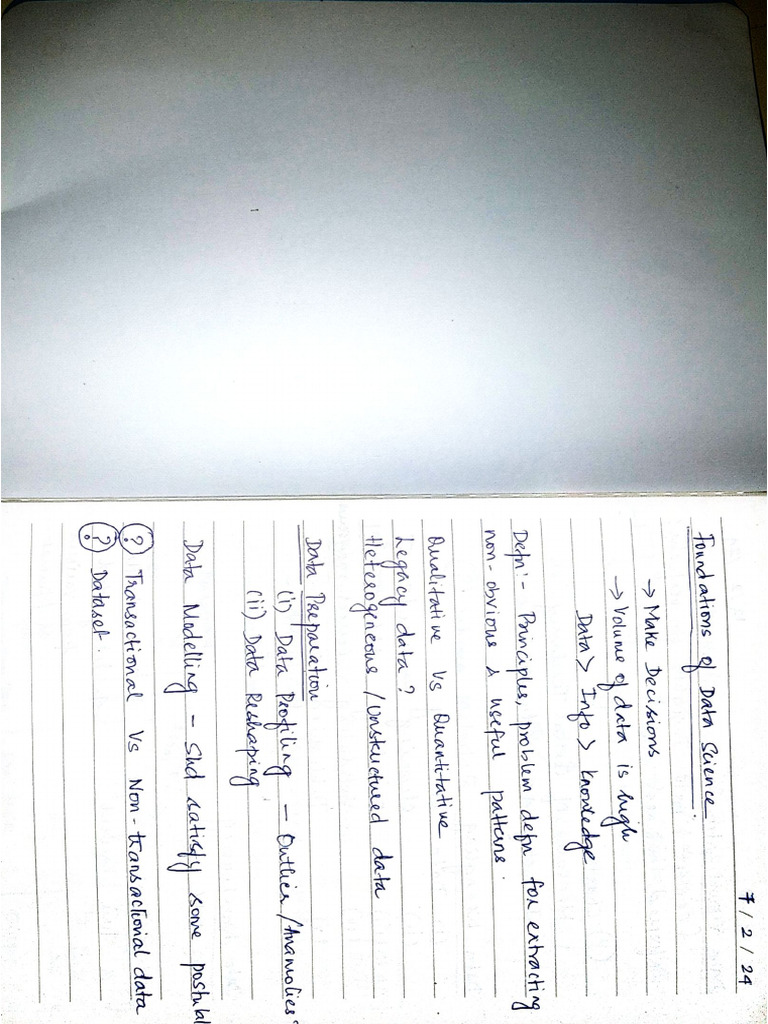 7/2/24
Foundations of Data Science.
→ Make Decisions
→ Volume of data is high
Data > Info > Knowledge
Defn:- Principles, problem defn for extracting
non-obvious & useful patterns.
Qualitative Vs Quantitative
Legacy data?
Heterogeneous / Unstructured data
Data Preparation
(i) Data Profiling - Outlier / Anamolies?
(ii) Data Reshaping
Data Modelling - Shd satisfy some
? Transactional Vs Non-transactional data
? Dataset.